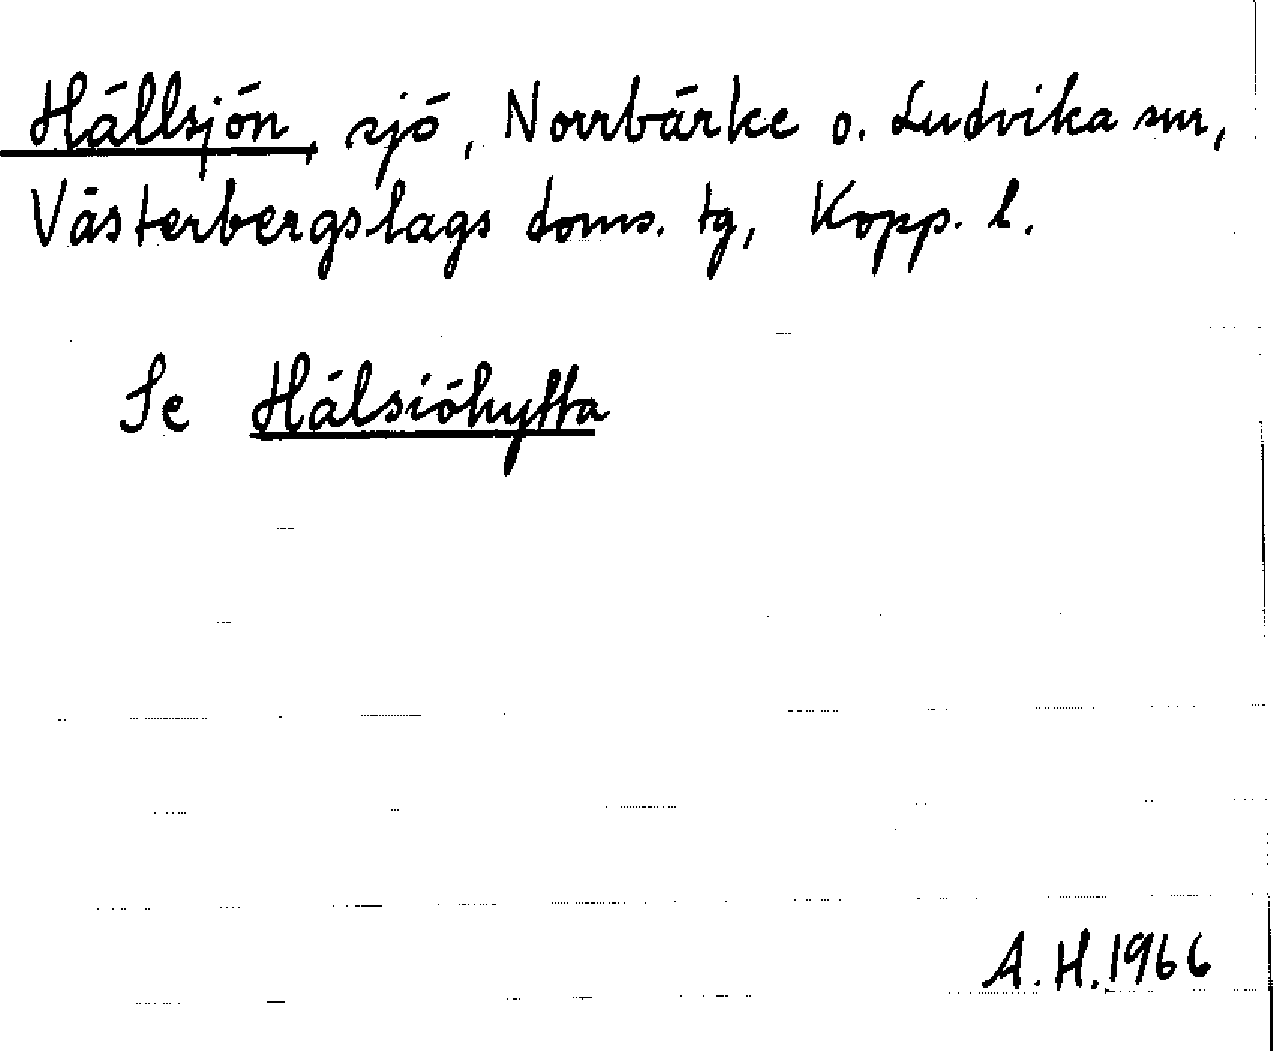 Hällsjön, sjö, Norrbärke o. Ludvika snr,
Västerbergslags doms. tg, Kopp. l.
Se Hälsiöhytta
A.H. 1966